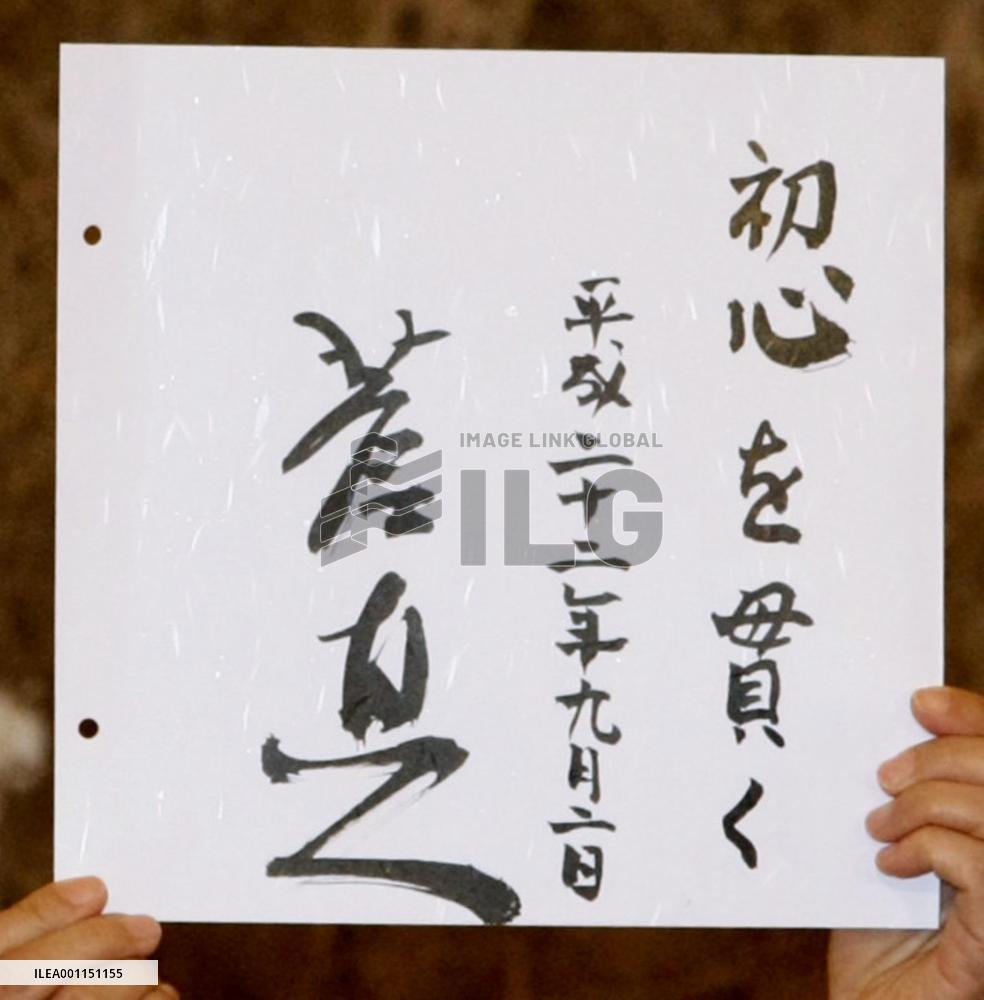 初心を貫く
平成二十二年九月二日
菅直人
IMAGE LINK GLOBAL
ILG
ILEA001151155